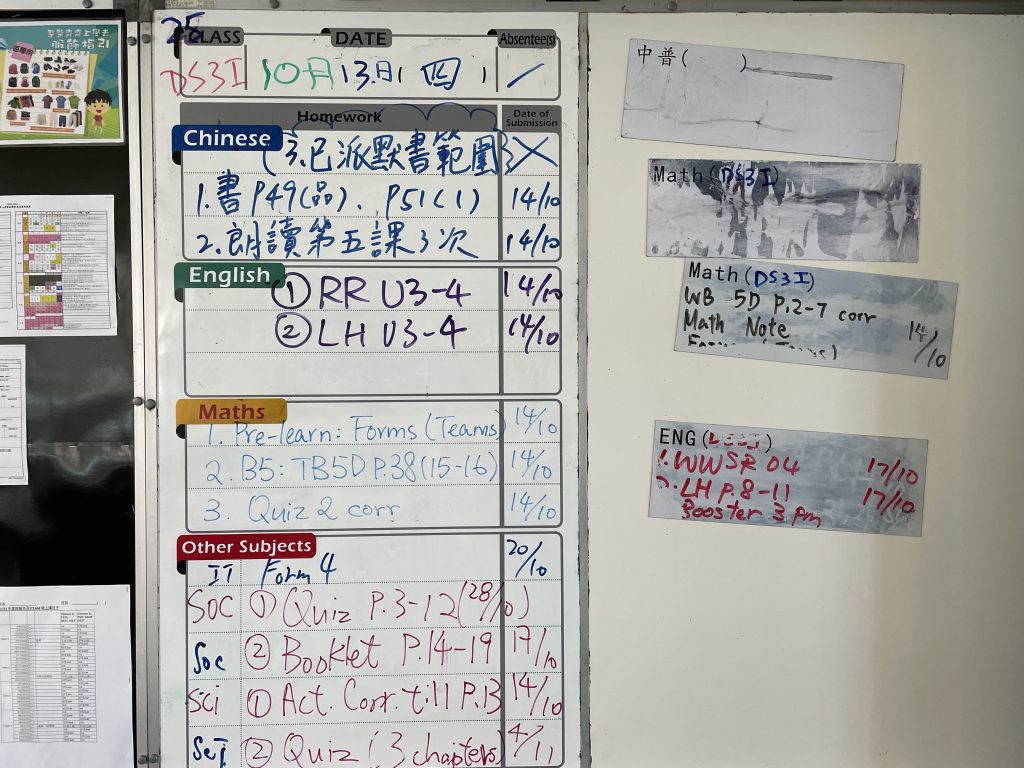 愛學齊齊上學去
服飾指引
25
CLASS DATE Absentee(s)
DS3I 10月 13日 四
Homework Date of Submission
Chinese
(3.已派默書範圍)
1.書 P49(品)、P51(1) 14/10
2.朗讀第五課3次 14/10
English
① RR U3-4 14/10
② LH U3-4 14/10
Maths
1. Pre-learn: Forms (Teams) 14/10
2. B5: TB5D P.38 (15-16) 14/10
3. Quiz 2 corr 14/10
Other Subjects
IT Form 4 20/10
SOC ① Quiz P.3-12 (28/10)
Soc ② Booklet P.14-19 17/10
Sci ① Act. Corr. till P.13 14/10
② Quiz (3 chapters) 4/11
中普( )
Math(DS3I)
Math(DS3I)
WB 5D P.2-7 corr
Math Note 14/10
ENG( )
1. WWSR 04 17/10
2. LH P.8-11 17/10
Booster 3 pm